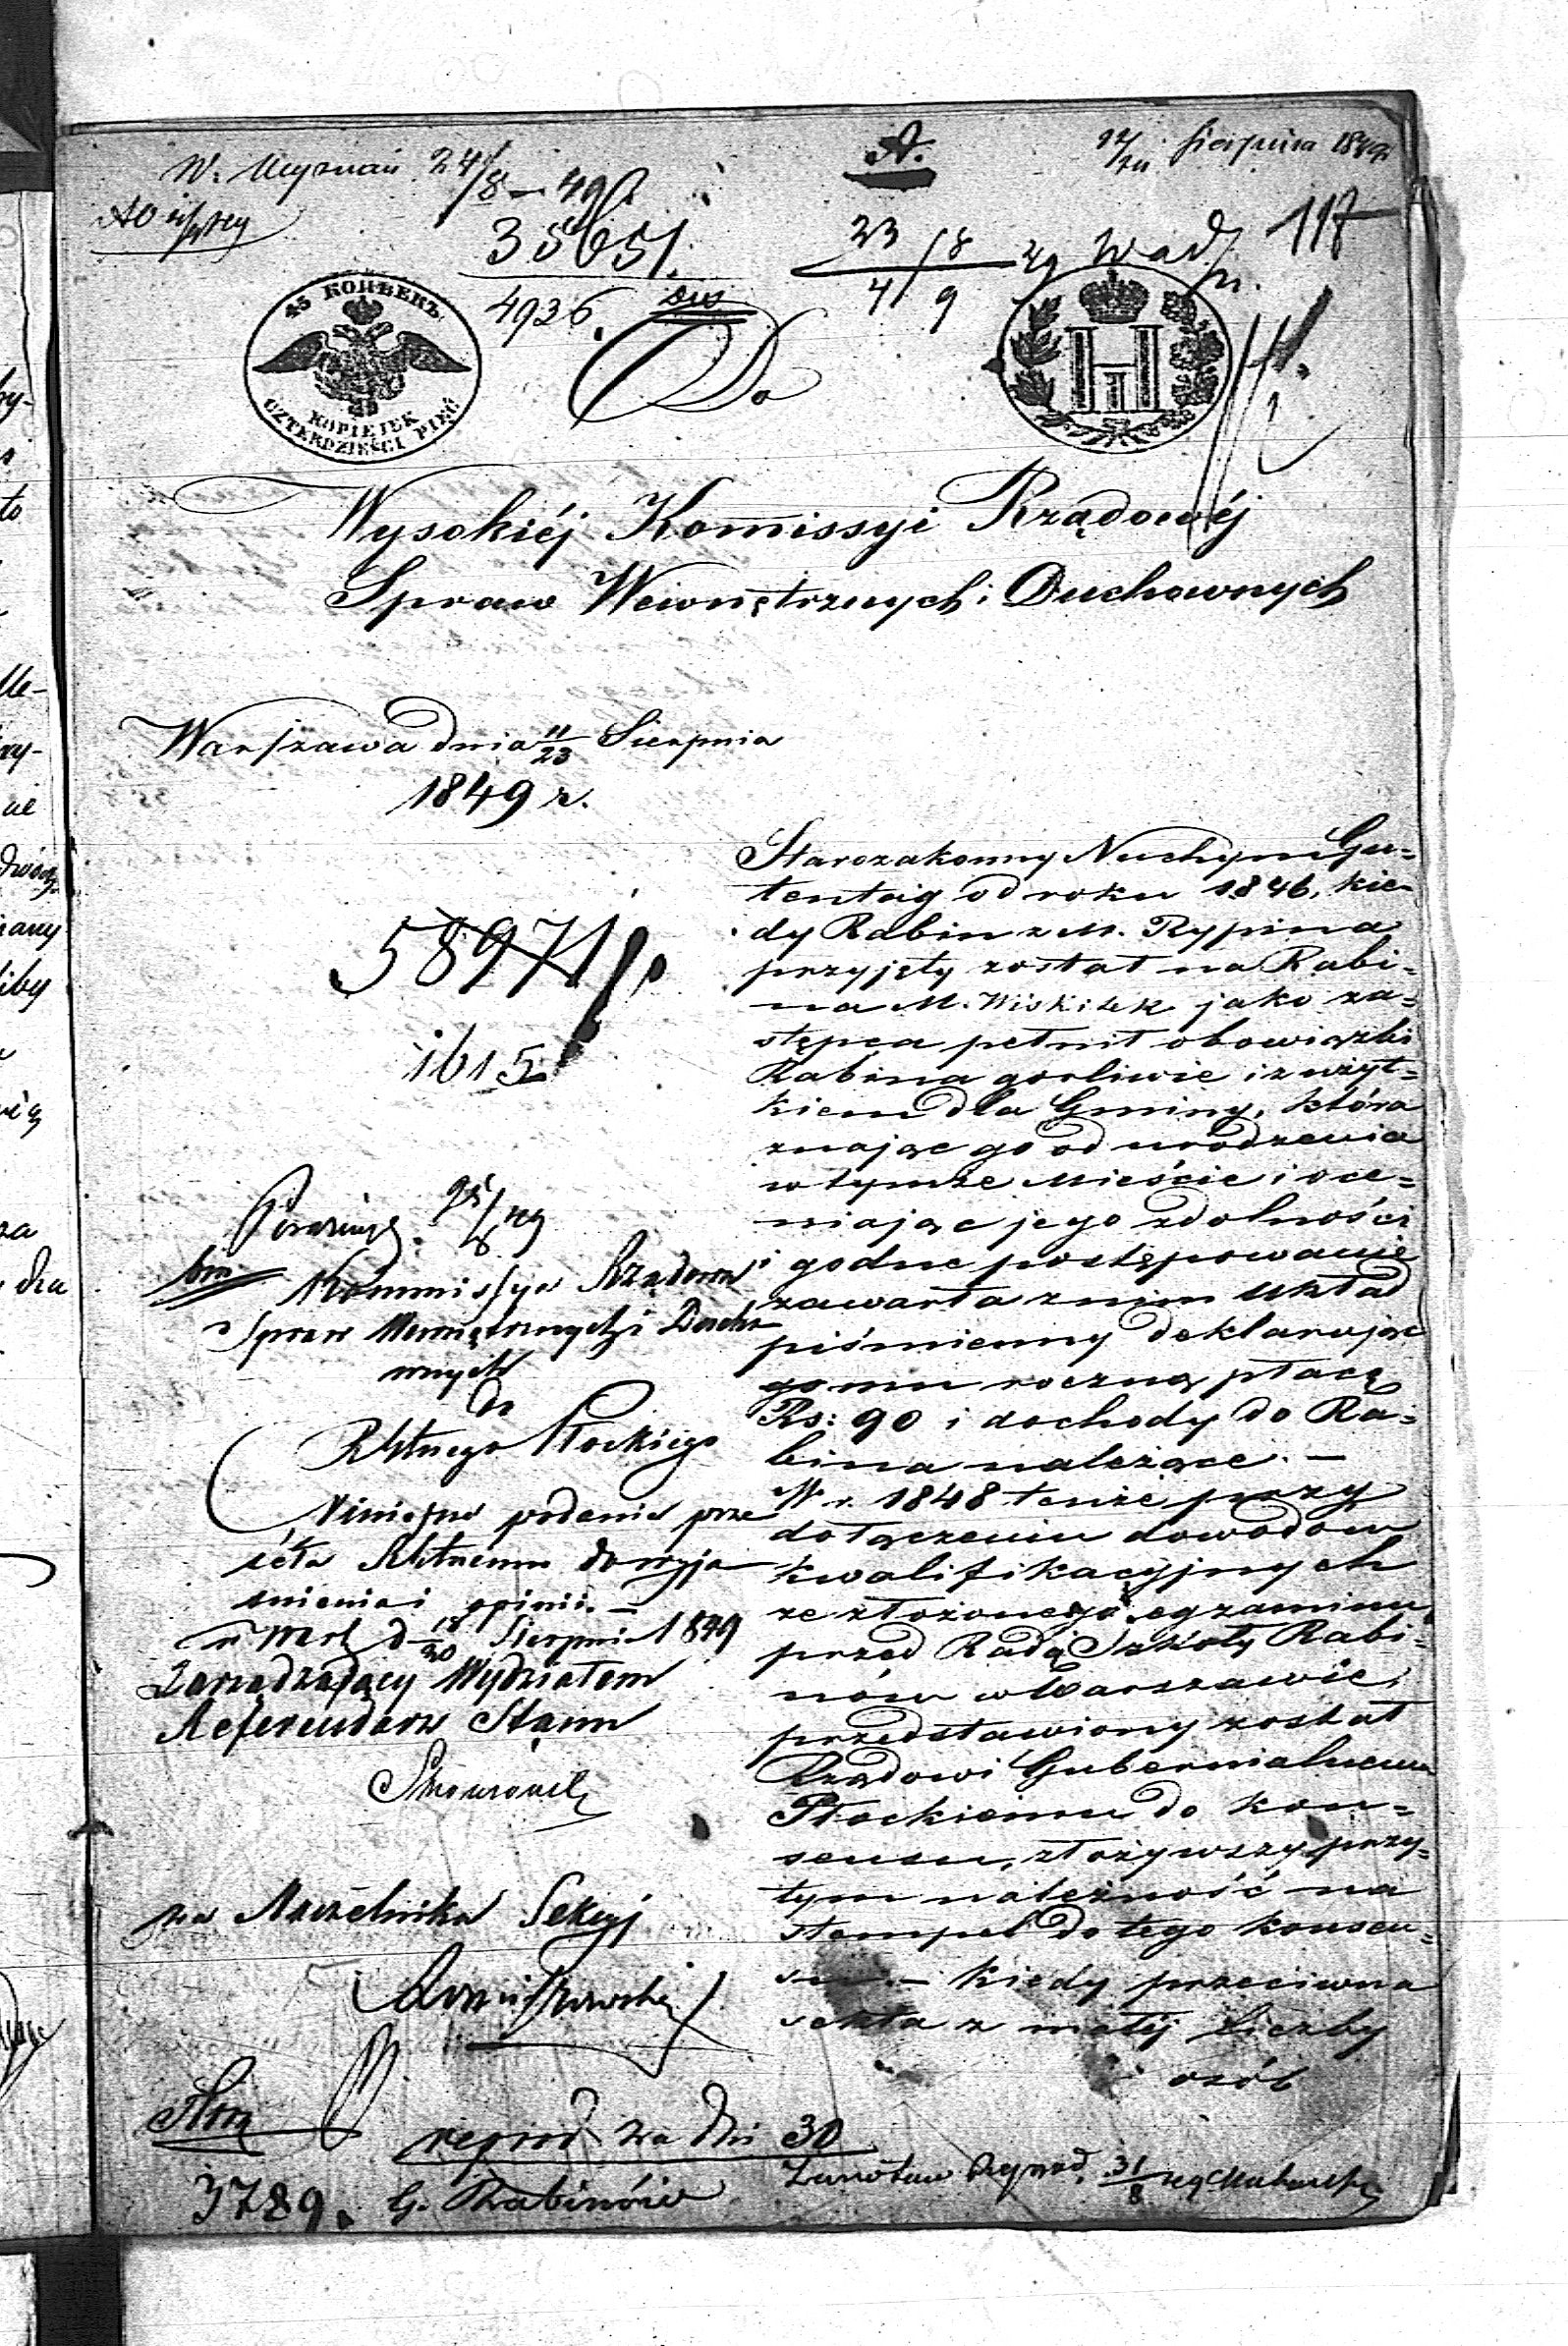 W. Wyznań 24/8 – 49
12/24 Sierpnia 1849
35651.
23/8 49 Wad.
117
4936.
4/9
45 КОПѢЕКЪ
45
KOPIEJEK
CZTERDZIEŚCI PIĘĆ
Do
Wysokiéj Komissyi Rządowéj
Spraw Wewnętrznych i Duchownych
Warszawa dnia 11/23 Sierpnia
1849 r.
58971
1615
Starozakonny Nuchym Gu=
tentag od roku 1846, kie=
dy Rabin z M. Rypina
przyjęty został na Rabi=
na M. Wiskitek jako za=
stępca pełnił obowiązki
Rabina gorliwie i z użyt=
kiem dla Gminy, która
znając go od urodzenia
w tymże Mieście i oce=
niając jego zdolności
i godne postępowanie
zawarła z nim układ
piśmienny deklarując
mu roczną płacę
Rs: 90 i dochody do Ra=
bina należące. —
W r. 1848 tenże przy
dołączeniu dowodów
kwalifikacyjnych
ze złożonego egzaminu
przed Radą Szkoły Rabi=
nów w Warszawie,
przedstawiony został
Rządowi Gubernialnemu
Płockiemu do kon=
sensu, złożywszy przy=
tym należność na
stempel do tego konsen=
su. — Kiedy przeciwna
sekta z małéj liczby
osób
Kommissya Rządowa
Spraw Wewnętrznych i Ducho
wnych
Do
Rządu Gubernialnego Płockiego
Niniejsze podanie prze
séła do wyja
śnienia i opinii. —
w Warsz d 18/30 Sierpnia 1849
Zarządzający Wydziałem
Referendarz Stanu
za Naczelnika Sekcyi
reprod za dni 30
3789. G. Rabinów
31/8